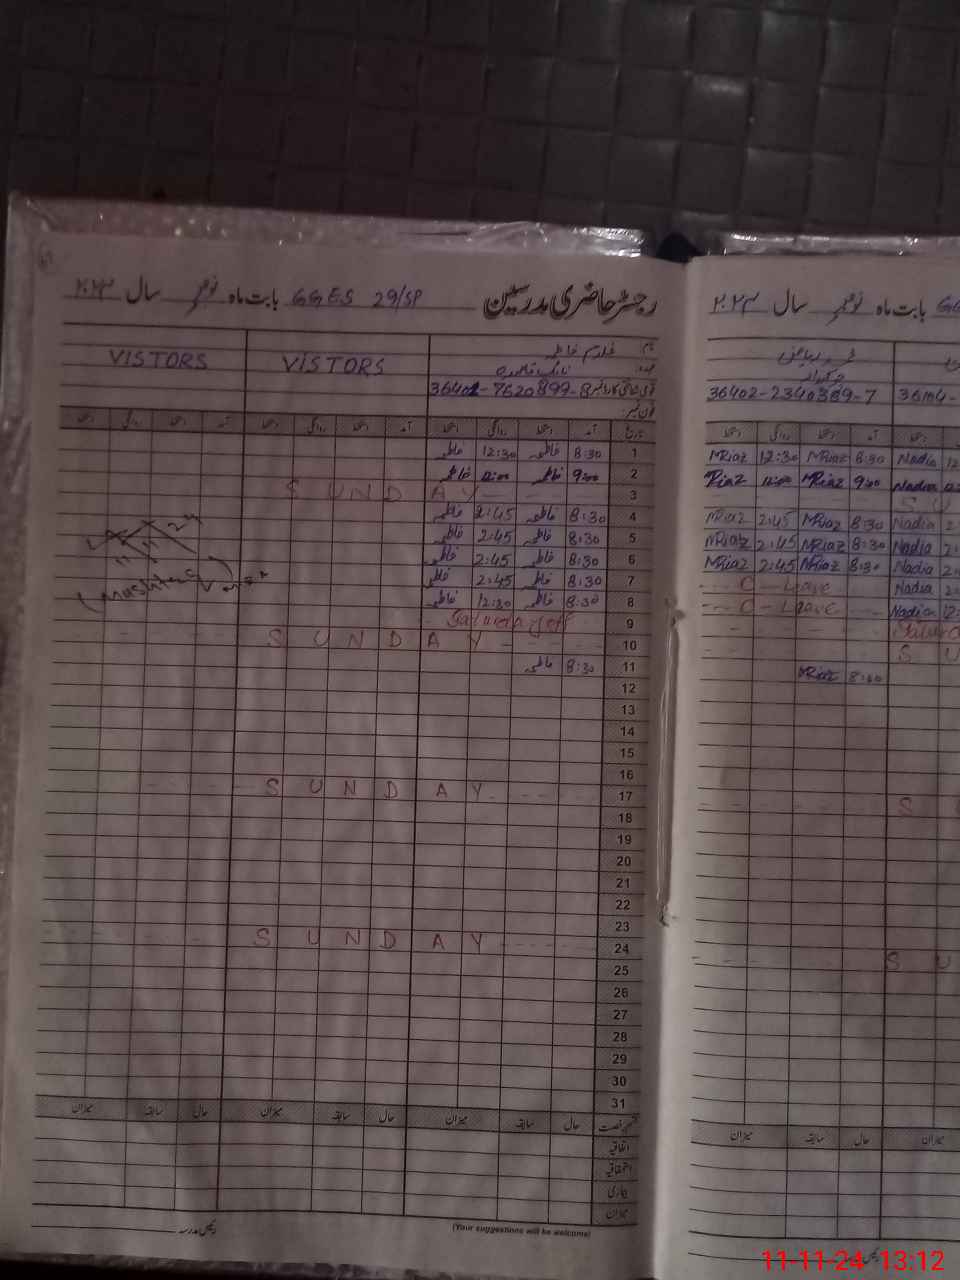 رجسٹر حاضری مدرسین GGES 29/SP بابت ماہ نومبر سال ۲۰۲۴
نام خادم فاطمہ
VISTORS VISTORS
عہدہ نائب قاصدہ
قومی شناختی کارڈ نمبر 36402-7620899-8
فون نمبر:
تاریخ آمد دستخط روانگی دستخط آمد دستخط روانگی دستخط آمد دستخط روانگی دستخط
1 8:30 فاطمہ 12:30 فاطمہ
2 9:00 فاطمہ 12:00 فاطمہ
3 SUNDAY
4 8:30 فاطمہ 2:45 فاطمہ
5 8:30 فاطمہ 2:45 فاطمہ
6 8:30 فاطمہ 2:45 فاطمہ
7 8:30 فاطمہ 2:45 فاطمہ
8 8:30 فاطمہ 12:30 فاطمہ
9 Saturday off
10 SUNDAY
11 8:30 فاطمہ
12
13
14
15
16
17 SUNDAY
18
19
20
21
22
23
24 SUNDAY
25
26
27
28
29
30
31
قسم رخصت حال سابقہ میزان حال سابقہ میزان حال سابقہ میزان
اتفاقیہ
استحقاقیہ
بیماری
میزان
(Your suggestions will be welcome)
رئیس مدرسہ
Mushtaq
بابت ماہ نومبر سال ۲۰۲۴
محمد ریاض
چوکیدار
36402-2340369-7
آمد دستخط روانگی دستخط
Nadia 8:30 MRiaz 12:30 MRiaz
Nadia 9:00 MRiaz 12:00 Riaz
S U
Nadia 8:30 MRiaz 2:45 MRiaz
Nadia 8:30 MRiaz 2:45 MRiaz
Nadia 8:30 MRiaz 2:45 MRiaz
Nadia C-Leave
Nadia C-Leave
S U
8:40 MRiaz
S
S U
میزان حال سابقہ میزان
رئیس مدرسہ
11-11-24 13:12